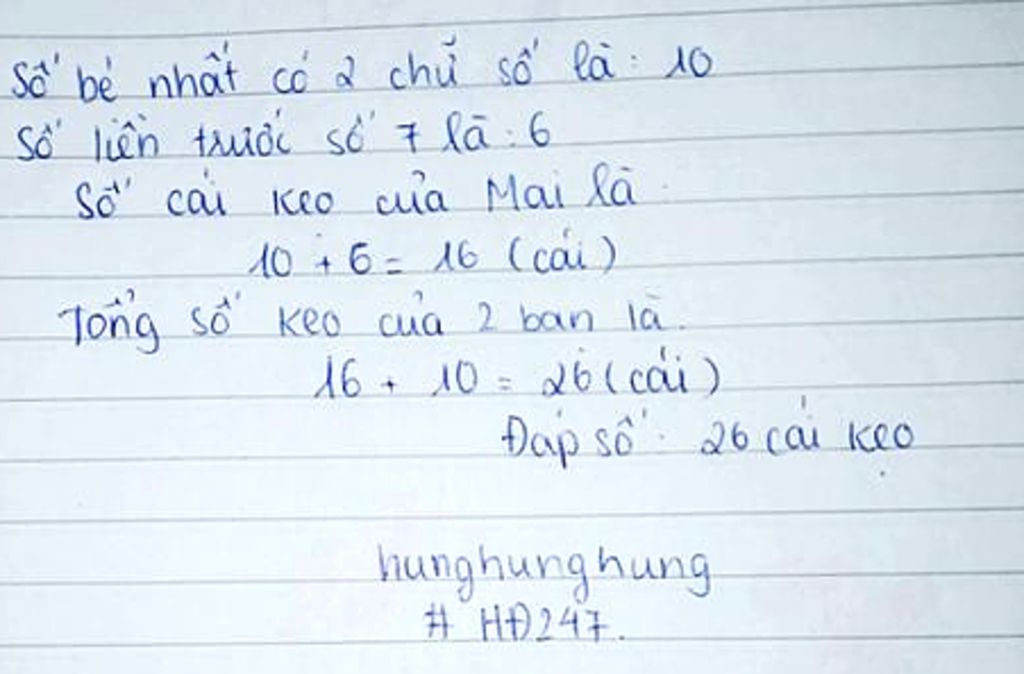 Số bé nhất có 2 chữ số là: 10
Số liền trước số 7 là: 6
Số cái kẹo của Mai là:
10 + 6 = 16 (cái)
Tổng số kẹo của 2 bạn là.
16 + 10 = 26 (cái)
Đáp số: 26 cái kẹo
hunghunghung
# HĐ247.